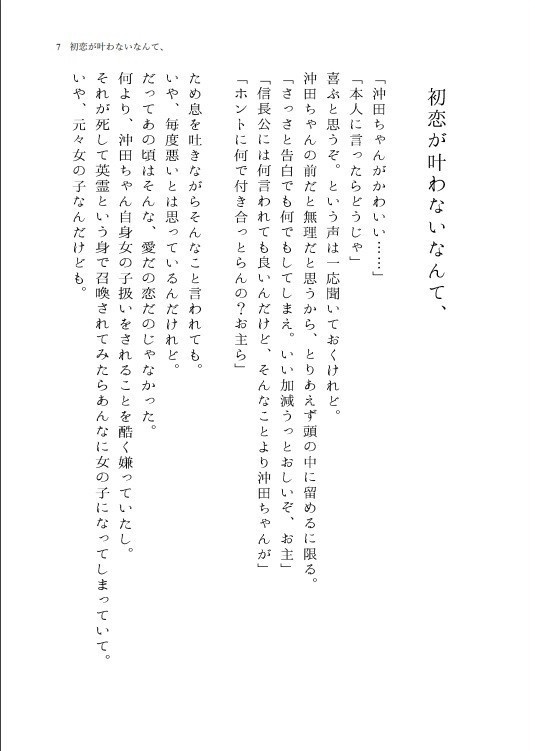 7 初恋が叶わないなんて、
初恋が叶わないなんて、
「沖田ちゃんがかわいい……」
「本人に言ったらどうじゃ」
喜ぶと思うぞ。という声は一応聞いておくけれど。
沖田ちゃんの前だと無理だと思うから、とりあえず頭の中に留めるに限る。
「さっさと告白でも何でもしてしまえ。いい加減うっとおしいぞ、お主」
「信長公には何言われても良いんだけど、そんなことより沖田ちゃんが」
「ホントに何で付き合っとらんの？お主ら」
ため息を吐きながらそんなこと言われても。
いや、毎度悪いとは思っているんだけれど。
だってあの頃はそんな、愛だの恋だのじゃなかった。
何より、沖田ちゃん自身女の子扱いをされることを酷く嫌っていたし。
それが死して英霊という身で召喚されてみたらあんなに女の子になってしまっていて。
いや、元々女の子なんだけども。